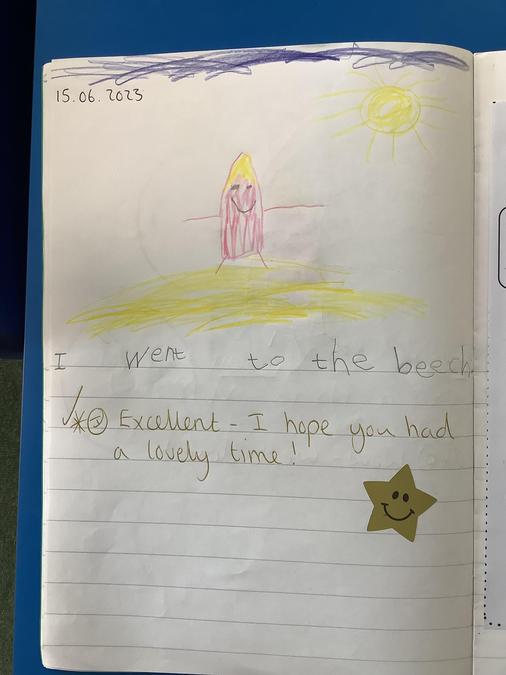 15.06.2023
I went to the beech
Excellent - I hope you had
a lovely time!